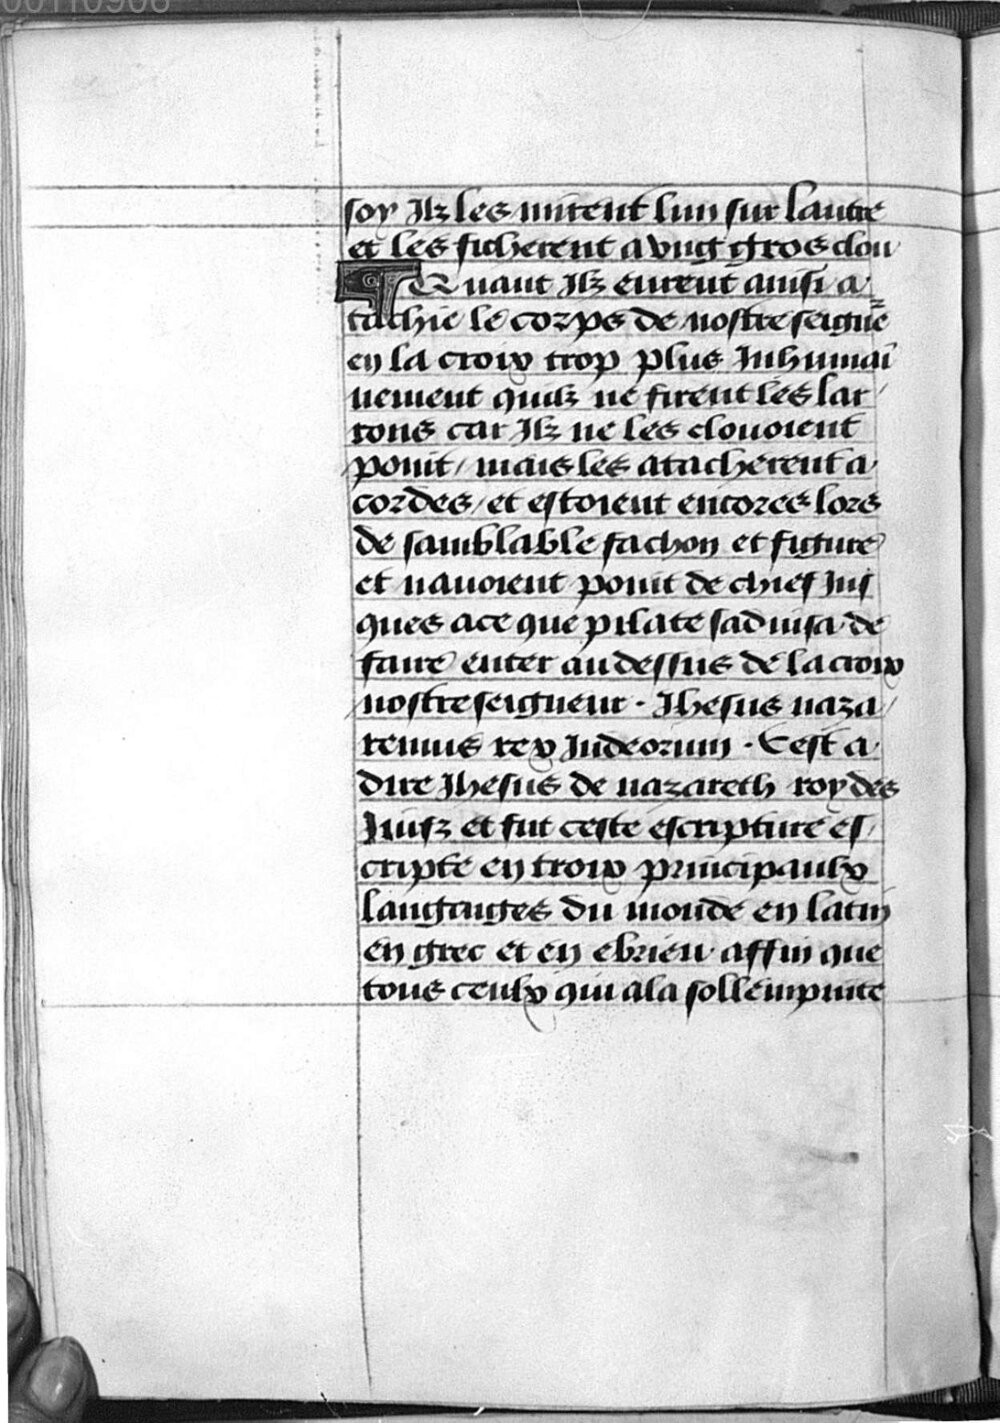 soy Ilz les mirent lun sur lautre
et les ficherent a vng gros clou
Quant Ilz eurent ainsi a
tachie le corps de nostre seigne
en la croix trop plus Inhumai
nement quilz ne firent les lar
rons car Ilz ne les clouoient
point / mais les atacherent a
cordes / et estoient encores lors
de samblable fachon et figure
et nauoient point de chief Jus
ques ace que pilate saduisa de
faire enter au dessus de la croix
nostre seigneur . Jhesus naza
renus rex Iudeorum . Cest a
dire Jhesus de nazareth roy des
Juifz et fut ceste escripture es
cripte en troix principaulx
langaiges du monde en latin
en grec et en ebrieu affin que
tous ceulx qui ala sollempnite